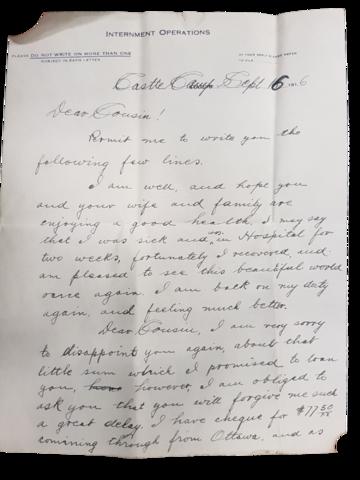 INTERNMENT OPERATIONS
PLEASE DO NOT WRITE ON MORE THAN ONE
SUBJECT IN EACH LETTER
IN YOUR REPLY PLEASE REFER
TO FILE
Castle Camp Sept. 16 1916
Dear Cousin!
Permit me to write you the
following few lines.
I am well, and hope you
and your wife and family are
enjoying a good health. I may say
that I was sick and in Hospital for
two weeks, fortunately I recovered, and
am pleased to see this beautiful world
once again. I am back on my duty
again, and feeling much better.
Dear Cousin, I am very sorry
to disappoint you again, about that
little sum which I promised to loan
you, have however, I am obliged to
ask you that you will forgive me such
a great delay. I have cheque for $77
comining through from Ottawa, and as